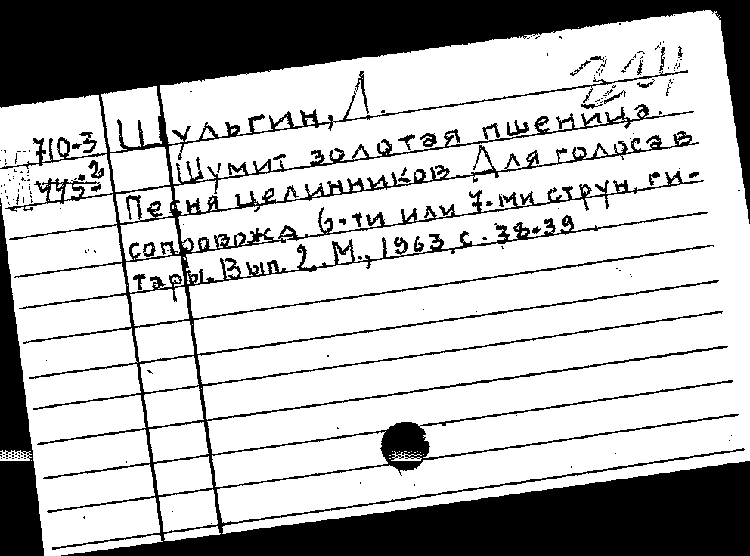 204
710-3
445-2
Шульгин, Л.
Шумит золотая пшеница.
Песня целинников. Для голоса в
сопровожд. 6-ти или 7-ми струн. ги-
тары. Вып. 2. М., 1963, с. 38-39.